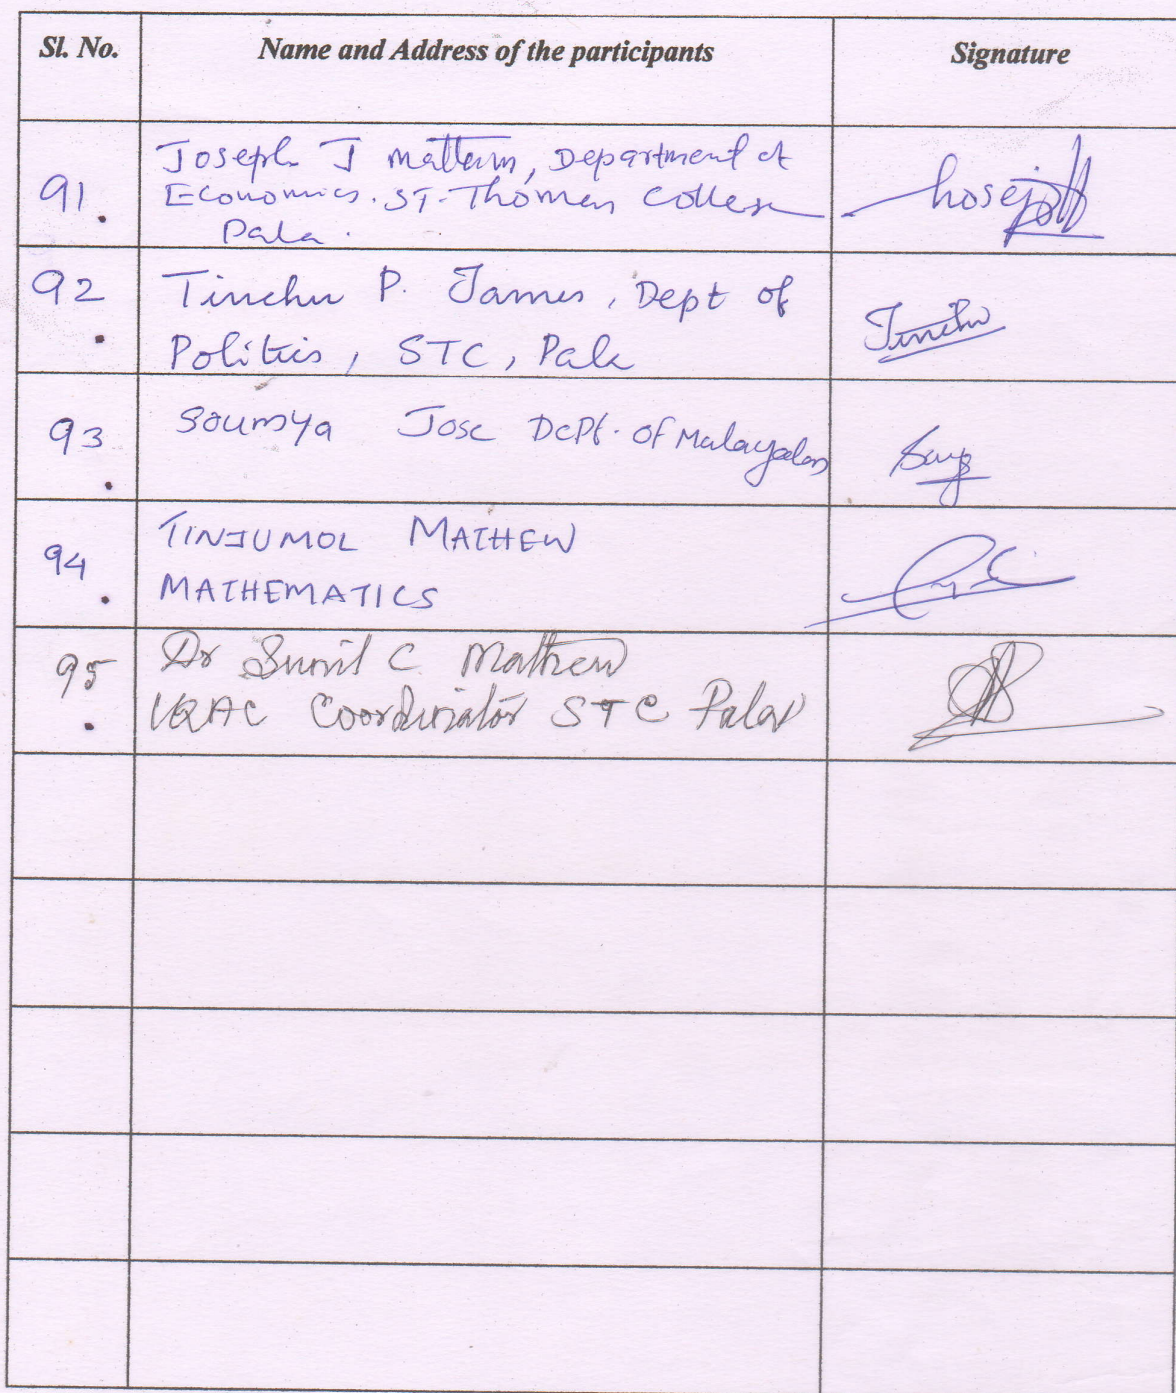 Sl. No. Name and Address of the participants Signature
Joseph J Mattam, Department of
91. Economics. ST. Thomas College
Pala.
92. Tinchu P. James, Dept of
Politics, STC, Pala Tinchu
93. Soumya Jose Dept. of Malayalam
94. TINJUMOL MATHEW
MATHEMATICS
95. Dr Sunil C. Mathew
IQAC Coordinator STC Pala